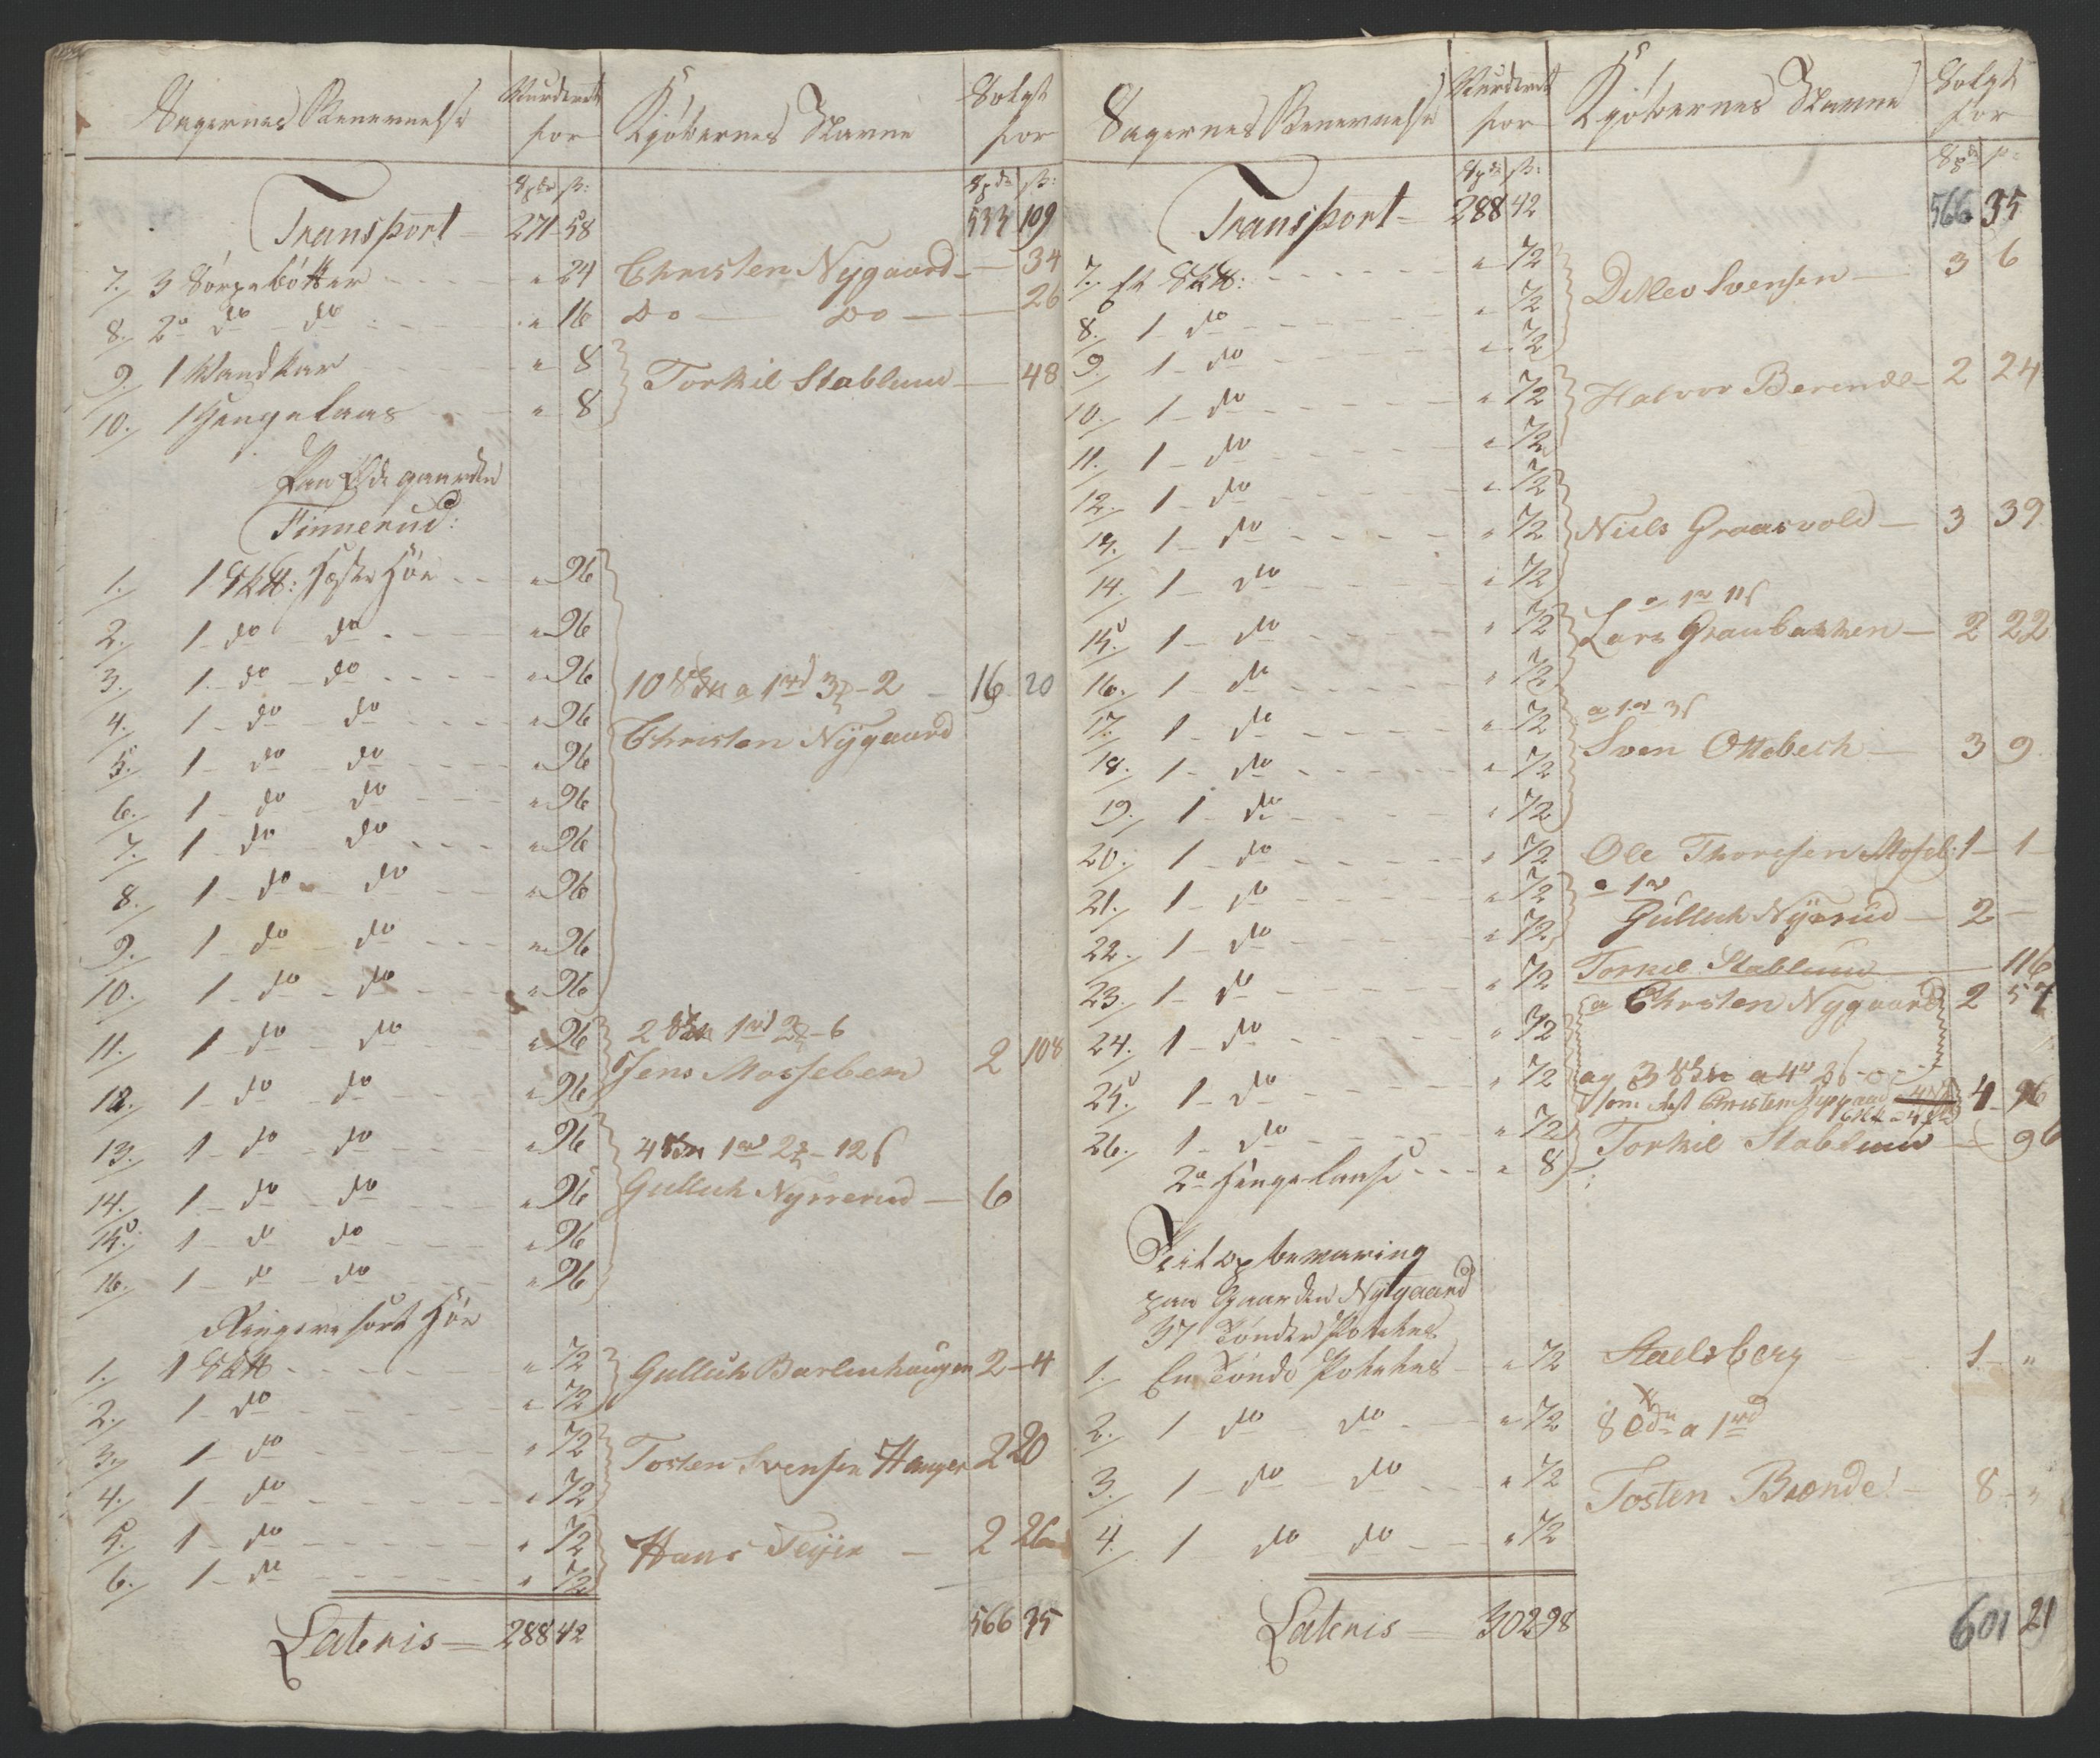 Sagernes Benevnelse Vurderet for Kjøbernes Navne Solgt for
Spdr ß: Spdr ß:
Transport 271 58 533 109
7. 3 Børgebøtter " 24 Christen Nÿgaard 34
8. 2 do do " 16 Do Do 26
9. 1 Vandkar " 8 Torkil Stablum 48
10. 1 Hengelaas " 8
Paa Ødegaarden
Finnerud:
1. 1 Sk℔: Heste Høe " 96
2. 1 do do " 96
3. 1 do do " 96 10 a 1 3 - 2 16 20
4. 1 do do " 96 Christen Nÿgaard
5. 1 do do " 96
6. 1 do do " 96
7. 1 do do " 96
8. 1 do do " 96
9. 1 do do " 96
10. 1 do do " 96
11. 1 do do " 96 2 1 2 - 6
12. 1 do do " 96 Jens Mossebem 2 108
13. 1 do do " 96 4 1 2 - 12
14. 1 do do " 96 Gulluk Nyrrerud 6
15. 1 do do " 96
16. 1 do do " 96
Ringere sort Høe
1. 1 Sk℔ " 72 Gulluk Barlinhaugen 2 4
2. 1 do " 72
3. 1 do " 72 Tosten Svensen Haugen 2 20
4. 1 do " 72
5. 1 do " 72 Hans Teÿen 2 26
6. 1 do " 72
Lateris 288 42 566 35
Sagernes Benevnelse Vurderet for Kjøbernes Navne Solgt for
Spdr ß: Spdr ß:
Transport 288 42 566 35
7. Et Sk℔: " 72 Ditlev Svensen 3 6
8. 1 do " 72
9. 1 do " 72
10. 1 do " 72 Halvor Berende 2 24
11. 1 do " 72
12. 1 do " 72
13. 1 do " 72 Niels Graasvold 3 39
14. 1 do " 72
a 1 11
15. 1 do " 72 Lars Graubakken 2 22
16. 1 do " 72
a 1 3
17. 1 do " 72 Sven Ottobech 3 9
18. 1 do " 72
19. 1 do " 72
20. 1 do " 72 Ole Thoresen Moseb: 1 1
21. 1 do " 72 a 1
22. 1 do " 72 Gulluk Nÿrrud 2
23. 1 do " 72 Torkil Stablum 116
24. 1 do " 72 a Christen Nygaard 2 57
25. 1 do " 72 og 3 a 4
som Christen Nygaard 4 96
26. 1 do " 72 Torkil Stablum 96
2 Hengelaase " 8
Til opbevaring
paa Gaarden Nÿgaard
37 Tønder Potetes
1. En Tønde Potetes " 72 Stadsberg 1 "
2. 1 do do " 72 8 a 1
3. 1 do do " 72 Tosten Brænde 8
4. 1 do do " 72
Lateris 302 98 601 21